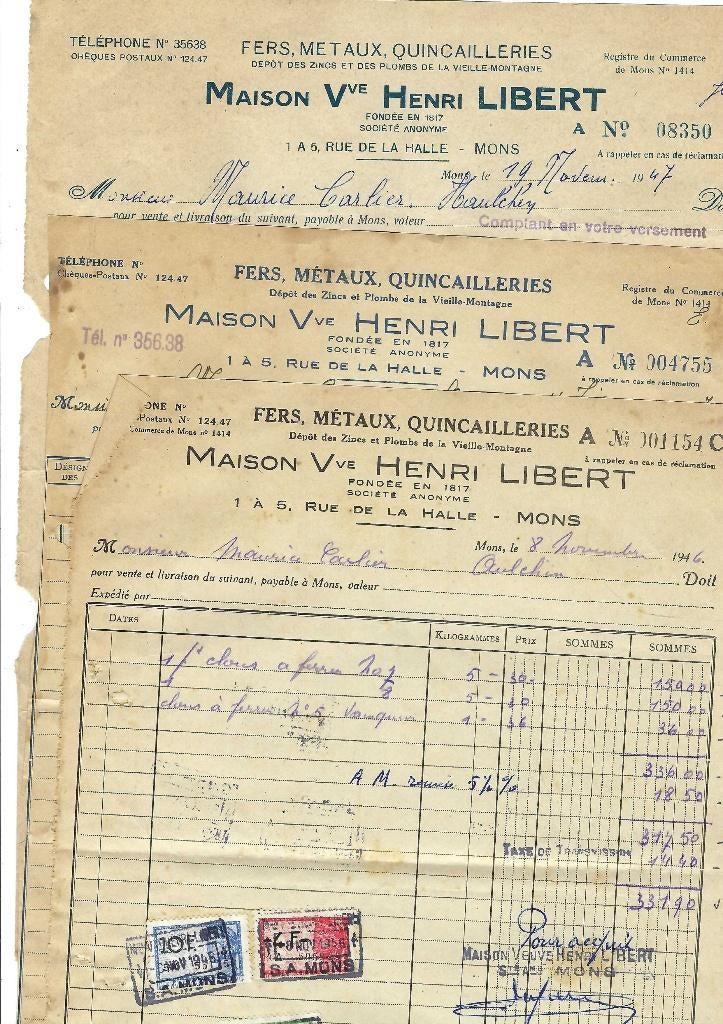 TÉLÉPHONE Nº 35638
CHÈQUES POSTAUX Nº 124.47
FERS, MÉTAUX, QUINCAILLERIES
DÉPÔT DES ZINCS ET DES PLOMBS DE LA VIEILLE-MONTAGNE
Registre du Commerce
de Mons Nº 1414
MAISON VVE HENRI LIBERT
FONDÉE EN 1817
SOCIÉTÉ ANONYME
A Nº 08350
1 A 5, RUE DE LA HALLE - MONS
A rappeler en cas de réclamati
Mons, le 19 Novem. 1947
Monsieur Maurice Carlier Haulchin
pour vente et livraison du suivant, payable à Mons, valeur
Comptant en votre versement
TÉLÉPHONE Nº
Chèques-Postaux Nº 124.47
FERS, MÉTAUX, QUINCAILLERIES
Dépôt des Zincs et Plombs de la Vieille-Montagne
Registre du Commerce
de Mons Nº 1414
MAISON VVE HENRI LIBERT
Tél. nº 356.38
FONDÉE EN 1817
SOCIÉTÉ ANONYME
A Nº 004755
1 À 5, RUE DE LA HALLE - MONS
à rappeler en cas de réclamation
Monsi
DÉSIGN
DES
ONE Nº
Postaux Nº 124.47
Commerce de Mons nº 1414
FERS, MÉTAUX, QUINCAILLERIES
A Nº 001154 C
Dépôt des Zincs et Plombs de la Vieille-Montagne
à rappeler en cas de réclamation
MAISON VVE HENRI LIBERT
FONDÉE EN 1817
SOCIÉTÉ ANONYME
1 À 5, RUE DE LA HALLE - MONS
Monsieur Maurice Carlier
Mons, le 8 Novembre 1946.
Aulchin
Doit
pour vente et livraison du suivant, payable à Mons, valeur
Expédié par
DATES
KILOGRAMMES
PRIX
SOMMES
SOMMES
clous a ferrer No 7 5 - 30 - 150 00
8 5 - 30 150 00
clous à ferrer Nº 5 1 - 36 36 00
336 00
A M. remise 5 ½ % 18 50
317 50
TAXE DE TRANSMISSION 14 40
331 90
10F
NOV 1946
S.A. MONS
8 NOV 1946
S.A. MONS
Pour acquit
MAISON VEUVE HENRI LIBERT
MONS